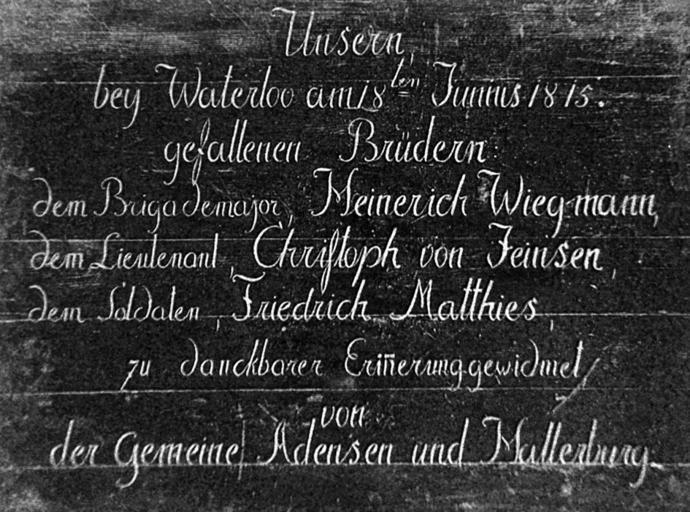 Unsern,
bey Waterloo am 18ten Junius 1815.
gefallenen Brüdern
dem Brigademajor, Heinerich Wiegmann,
dem Lieutenant, Chriſtoph von Jeinsen,
dem Soldaten, Friedrich Matthies,
zu danckbarer Erin̄erung gewidmet
von
der Gemeine Adensen und Hallerburg.